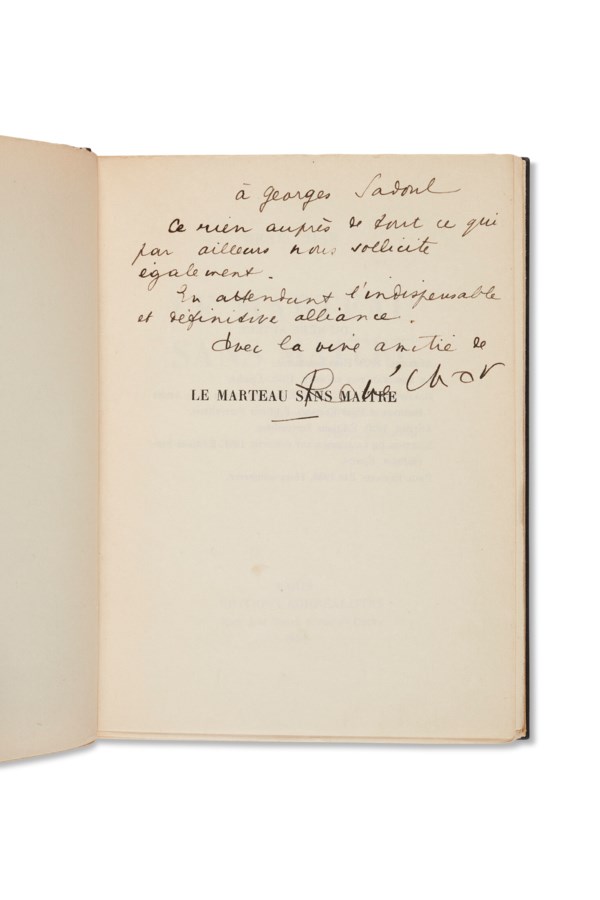 à Georges Sadoul
Ce rien auprès de tout ce qui
par ailleurs nous sollicite
également.
En attendant l'indispensable
et définitive alliance.
Avec la vive amitié de
René Char
LE MARTEAU SANS MAITRE